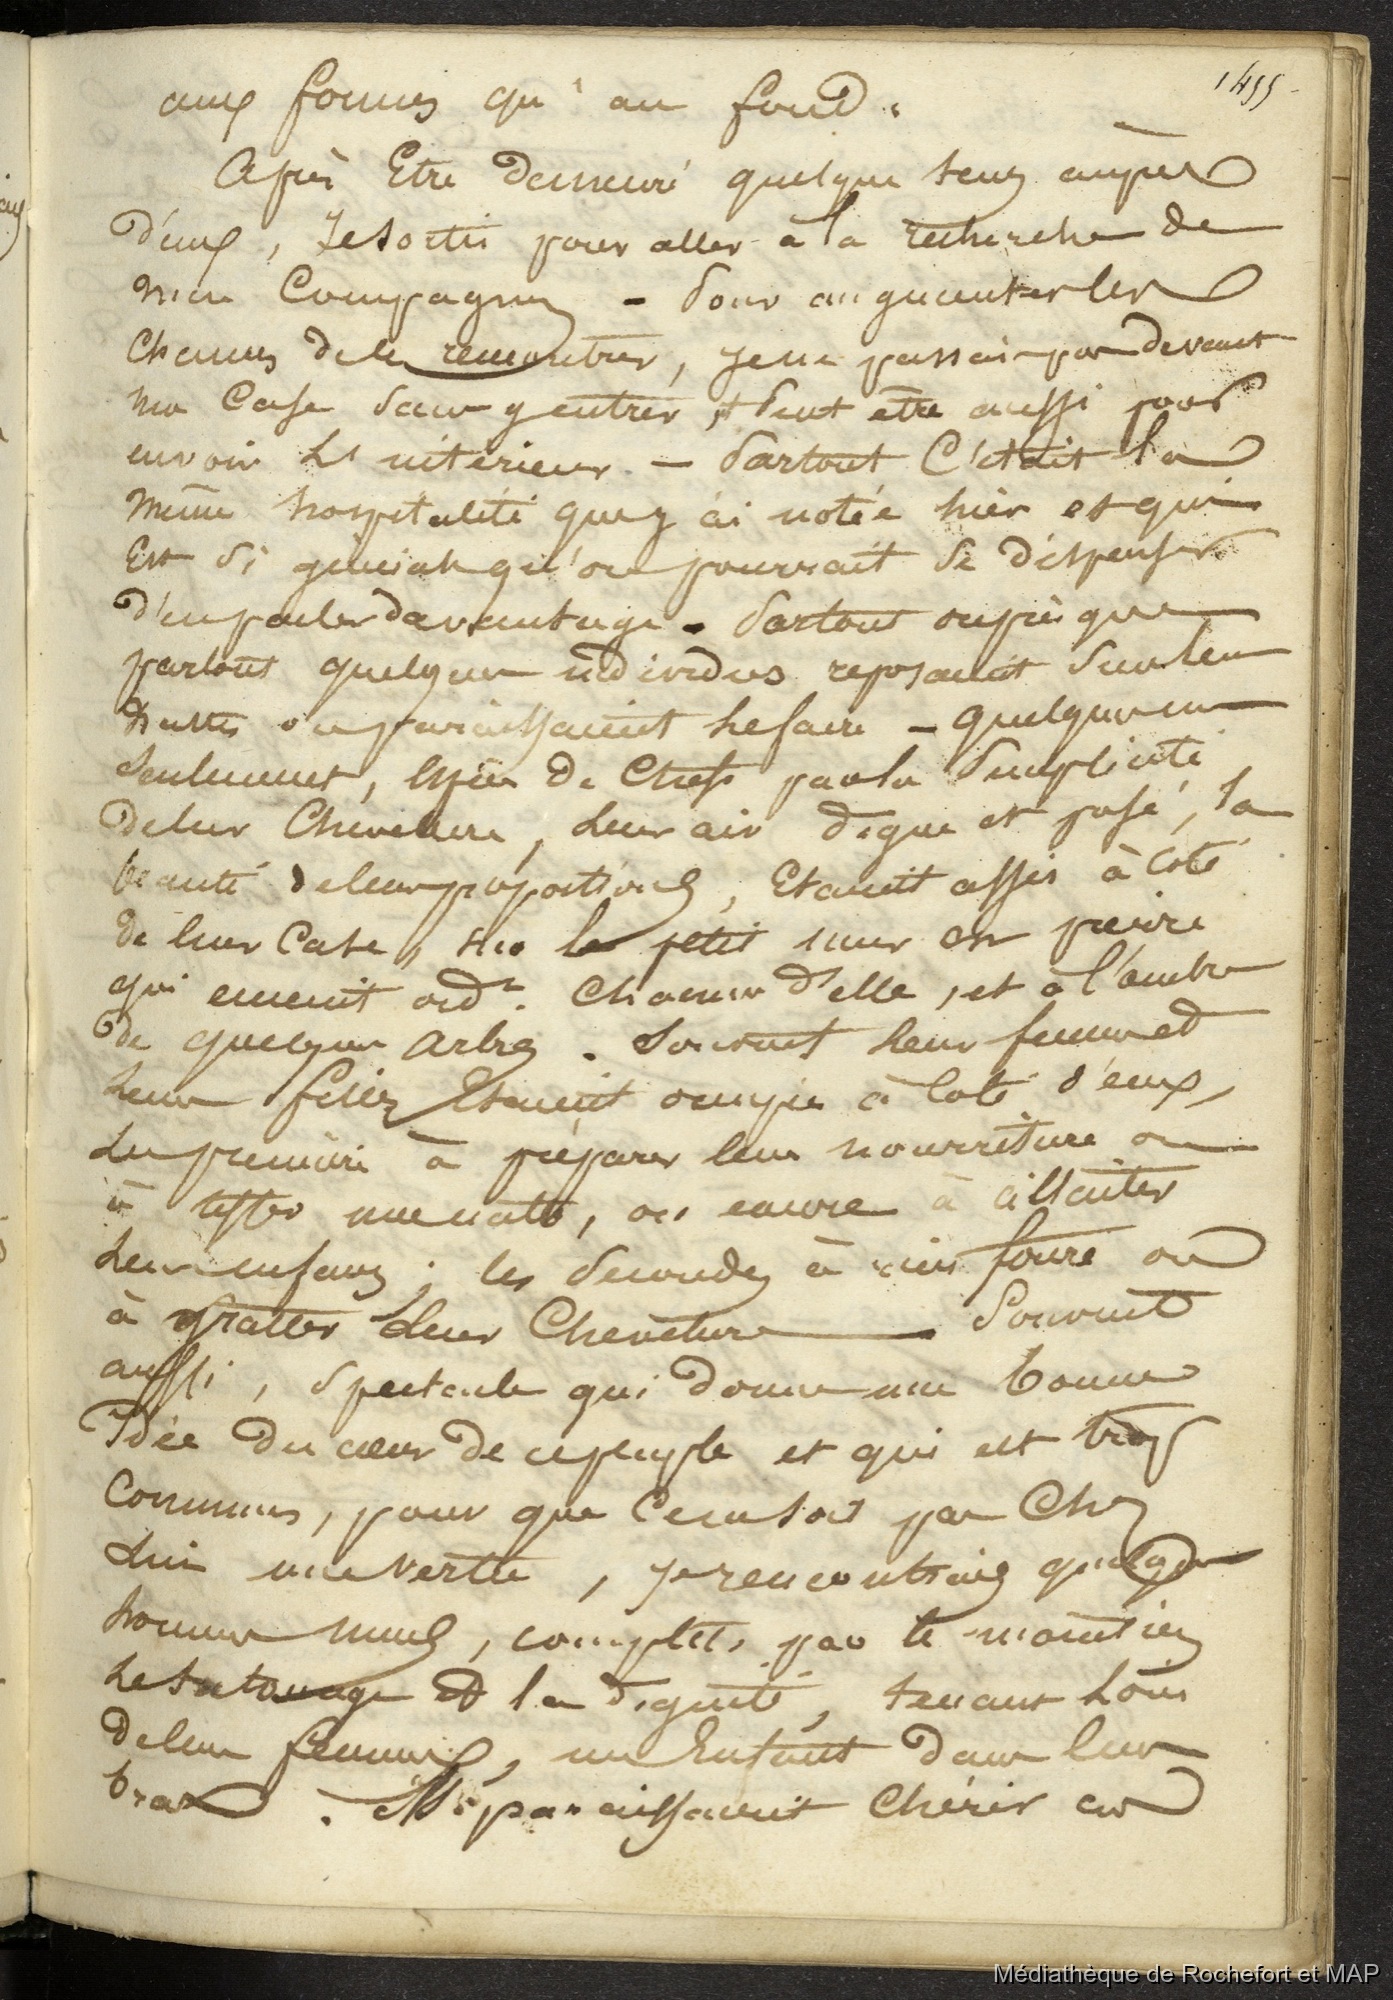 1455
aux formes qu'au fond.
Après Etre demeuré quelque tems auprès
d'eux, Je sortis pour aller à la recherche de
mon Compagnon - Pour augmenter les
chances de le rencontrer, je ne passais par devant
une Case sans y entrer, et Peut être aussi pour
en voir L'intérieur. - Partout C'était la
même hospitalité que j'ai notée hier et qui
Est Si générale qu'on pourrait Se dispenser
d'en parler davantage. Partout ou presque
partout quelques individus reposaient Sur leur
nattes ou paraissaient le faire - Quelques uns
Seulement, Espèce de Chefs par la Simplicité
de leur Chevelure, Leur air digne et posé, la
beauté de leurs proportions, Etaient assis à Coté
de leur Case, sur le petit mur en pierre
qui ordt. Chacune d'elle, et à l'ombre
de quelques Arbres. Souvent leur femme et
Leurs filles Etaient occupées à Coté d'eux,
Les premières à préparer leur nourriture ou
à tisser une natte, ou encore à allaiter
Leurs enfans; les Secondes à rien foure ou
à gratter Leur Chevelure. Souvent
aussi, Spectacle qui donne une bonne
Idée du cœur de ce peuple et qui est trop
Commun, pour que Ce ne soit pas Chez
Lui une vertu, Je rencontrais quelques
hommes murs, complets par le maintien
Le tatouage et la dignité, tenant Loin
de leur femmes, un Enfant dans leurs
bras. Ils paraissaient Chérir ces
Médiathèque de Rochefort et MAP